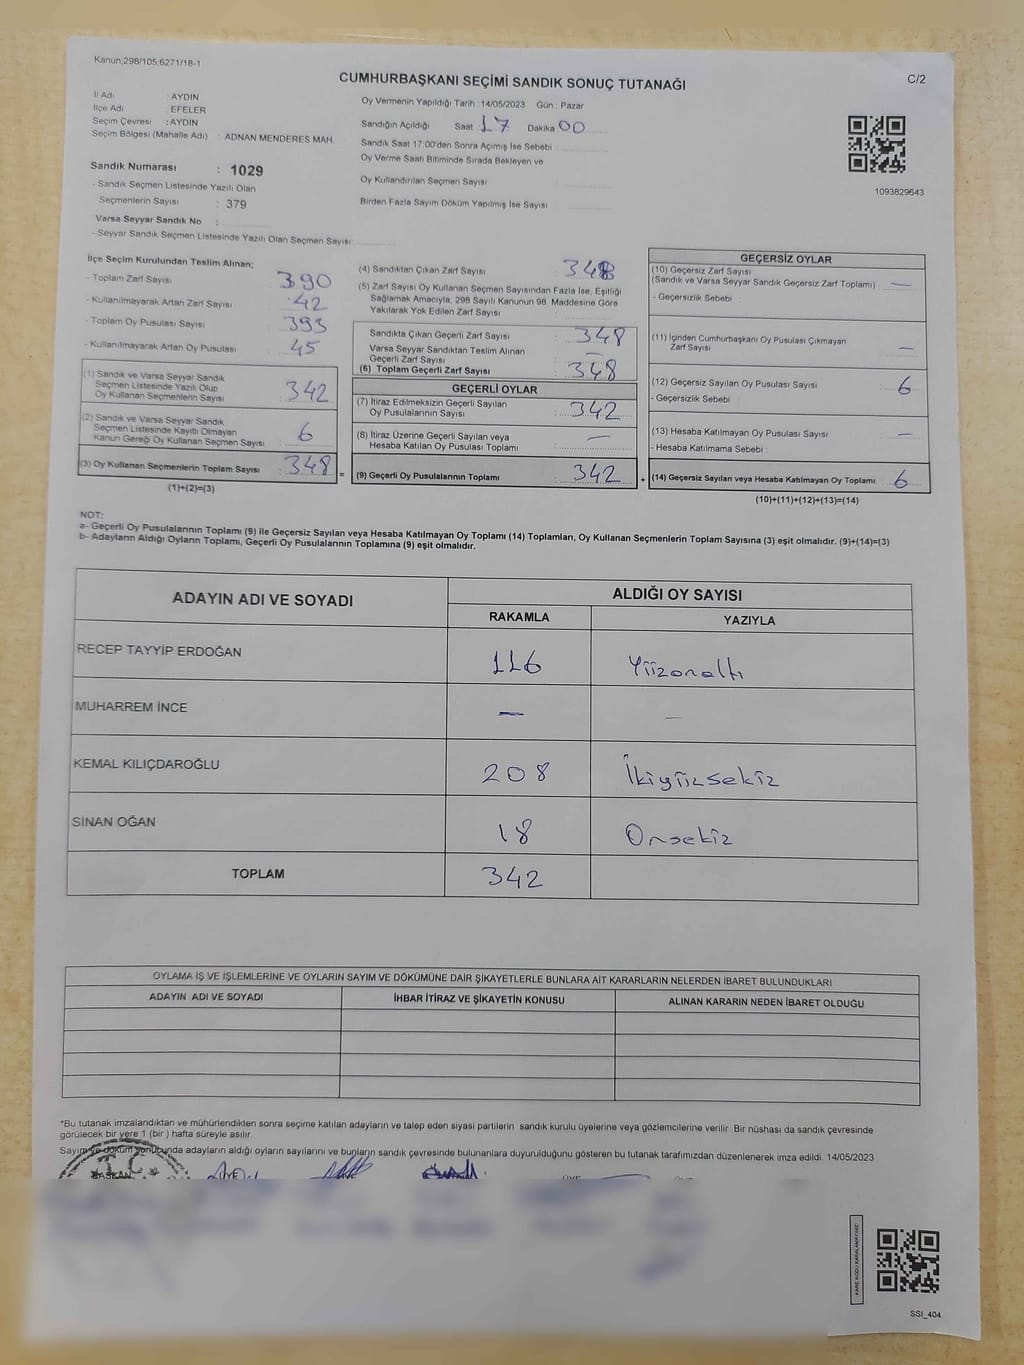 Kanun;298/105;6271/18-1
CUMHURBAŞKANI SEÇİMİ SANDIK SONUÇ TUTANAĞI
C/2
İl Adı : AYDIN
İlçe Adı : EFELER
Seçim Çevresi : AYDIN
Seçim Bölgesi (Mahalle Adı) : ADNAN MENDERES MAH.
Sandık Numarası : 1029
- Sandık Seçmen Listesinde Yazılı Olan
Seçmenlerin Sayısı : 379
Varsa Seyyar Sandık No :
- Seyyar Sandık Seçmen Listesinde Yazılı Olan Seçmen Sayısı:
Oy Vermenin Yapıldığı Tarih : 14/05/2023 Gün : Pazar
Sandığın Açıldığı Saat : 17 Dakika 00
Sandık Saat 17.00'den Sonra Açımış İse Sebebi :
Oy Verme Saati Bitiminde Sırada Bekleyen ve
Oy Kullandırılan Seçmen Sayısı
Birden Fazla Sayım Döküm Yapılmış İse Sayısı :
1093829643
İlçe Seçim Kurulundan Teslim Alınan;
- Toplam Zarf Sayısı : 390
- Kullanılmayarak Artan Zarf Sayısı : 42
- Toplam Oy Pusulası Sayısı : 393
- Kullanılmayarak Artan Oy Pusulası : 45
(1) Sandık ve Varsa Seyyar Sandık
Seçmen Listesinde Yazılı Olup
Oy Kullanan Seçmenlerin Sayısı : 342
(2) Sandık ve Varsa Seyyar Sandık
Seçmen Listesinde Kayıtlı Olmayan
Kanun Gereği Oy Kullanan Seçmen Sayısı : 6
(3) Oy Kullanan Seçmenlerin Toplam Sayısı : 348
(1)+(2)=(3)
(4) Sandıktan Çıkan Zarf Sayısı : 348
(5) Zarf Sayısı Oy Kullanan Seçmen Sayısından Fazla İse, Eşitliği
Sağlamak Amacıyla, 298 Sayılı Kanunun 98. Maddesine Göre
Yakılarak Yok Edilen Zarf Sayısı :
Sandıkta Çıkan Geçerli Zarf Sayısı : 348
Varsa Seyyar Sandıktan Teslim Alınan
Geçerli Zarf Sayısı : —
(6) Toplam Geçerli Zarf Sayısı : 348
GEÇERLİ OYLAR
(7) İtiraz Edilmeksizin Geçerli Sayılan
Oy Pusulalarının Sayısı : 342
(8) İtiraz Üzerine Geçerli Sayılan veya
Hesaba Katılan Oy Pusulası Toplamı : —
= (9) Geçerli Oy Pusulalarının Toplamı : 342 +
GEÇERSİZ OYLAR
(10) Geçersiz Zarf Sayısı
(Sandık ve Varsa Seyyar Sandık Geçersiz Zarf Toplamı) : —
- Geçersizlik Sebebi :
(11) İçinden Cumhurbaşkanı Oy Pusulası Çıkmayan
Zarf Sayısı : —
(12) Geçersiz Sayılan Oy Pusulası Sayısı : 6
- Geçersizlik Sebebi :
(13) Hesaba Katılmayan Oy Pusulası Sayısı : —
- Hesaba Katılmama Sebebi :
(14) Geçersiz Sayılan veya Hesaba Katılmayan Oy Toplamı : 6
(10)+(11)+(12)+(13)=(14)
NOT:
a- Geçerli Oy Pusulalarının Toplamı (9) ile Geçersiz Sayılan veya Hesaba Katılmayan Oy Toplamı (14) Toplamları, Oy Kullanan Seçmenlerin Toplam Sayısına (3) eşit olmalıdır. (9)+(14)=(3)
b- Adayların Aldığı Oyların Toplamı, Geçerli Oy Pusulalarının Toplamına (9) eşit olmalıdır.
ADAYIN ADI VE SOYADI ALDIĞI OY SAYISI
RAKAMLA YAZIYLA
RECEP TAYYİP ERDOĞAN 116 Yüzonaltı
MUHARREM İNCE — —
KEMAL KILIÇDAROĞLU 208 İkiyüzsekiz
SİNAN OĞAN 18 Onsekiz
TOPLAM 342
OYLAMA İŞ VE İŞLEMLERİNE VE OYLARIN SAYIM VE DÖKÜMÜNE DAİR ŞİKAYETLERLE BUNLARA AİT KARARLARIN NELERDEN İBARET BULUNDUKLARI
ADAYIN ADI VE SOYADI İHBAR İTİRAZ VE ŞİKAYETİN KONUSU ALINAN KARARIN NEDEN İBARET OLDUĞU
*Bu tutanak imzalandıktan ve mühürlendikten sonra seçime katılan adayların ve talep eden siyasi partilerin sandık kurulu üyelerine veya gözlemcilerine verilir .Bir nüshası da sandık çevresinde
görülecek bir yere 1 (bir ) hafta süreyle asılır.
Sayım ve döküm sonucunda adayların aldığı oyların sayılarını ve bunların sandık çevresinde bulunanlara duyurulduğunu gösteren bu tutanak tarafımızdan düzenlenerek imza edildi. 14/05/2023
T.C.
BAŞKAN ÜYE
KARE KODU KARALAMAYINIZ
SSI_404